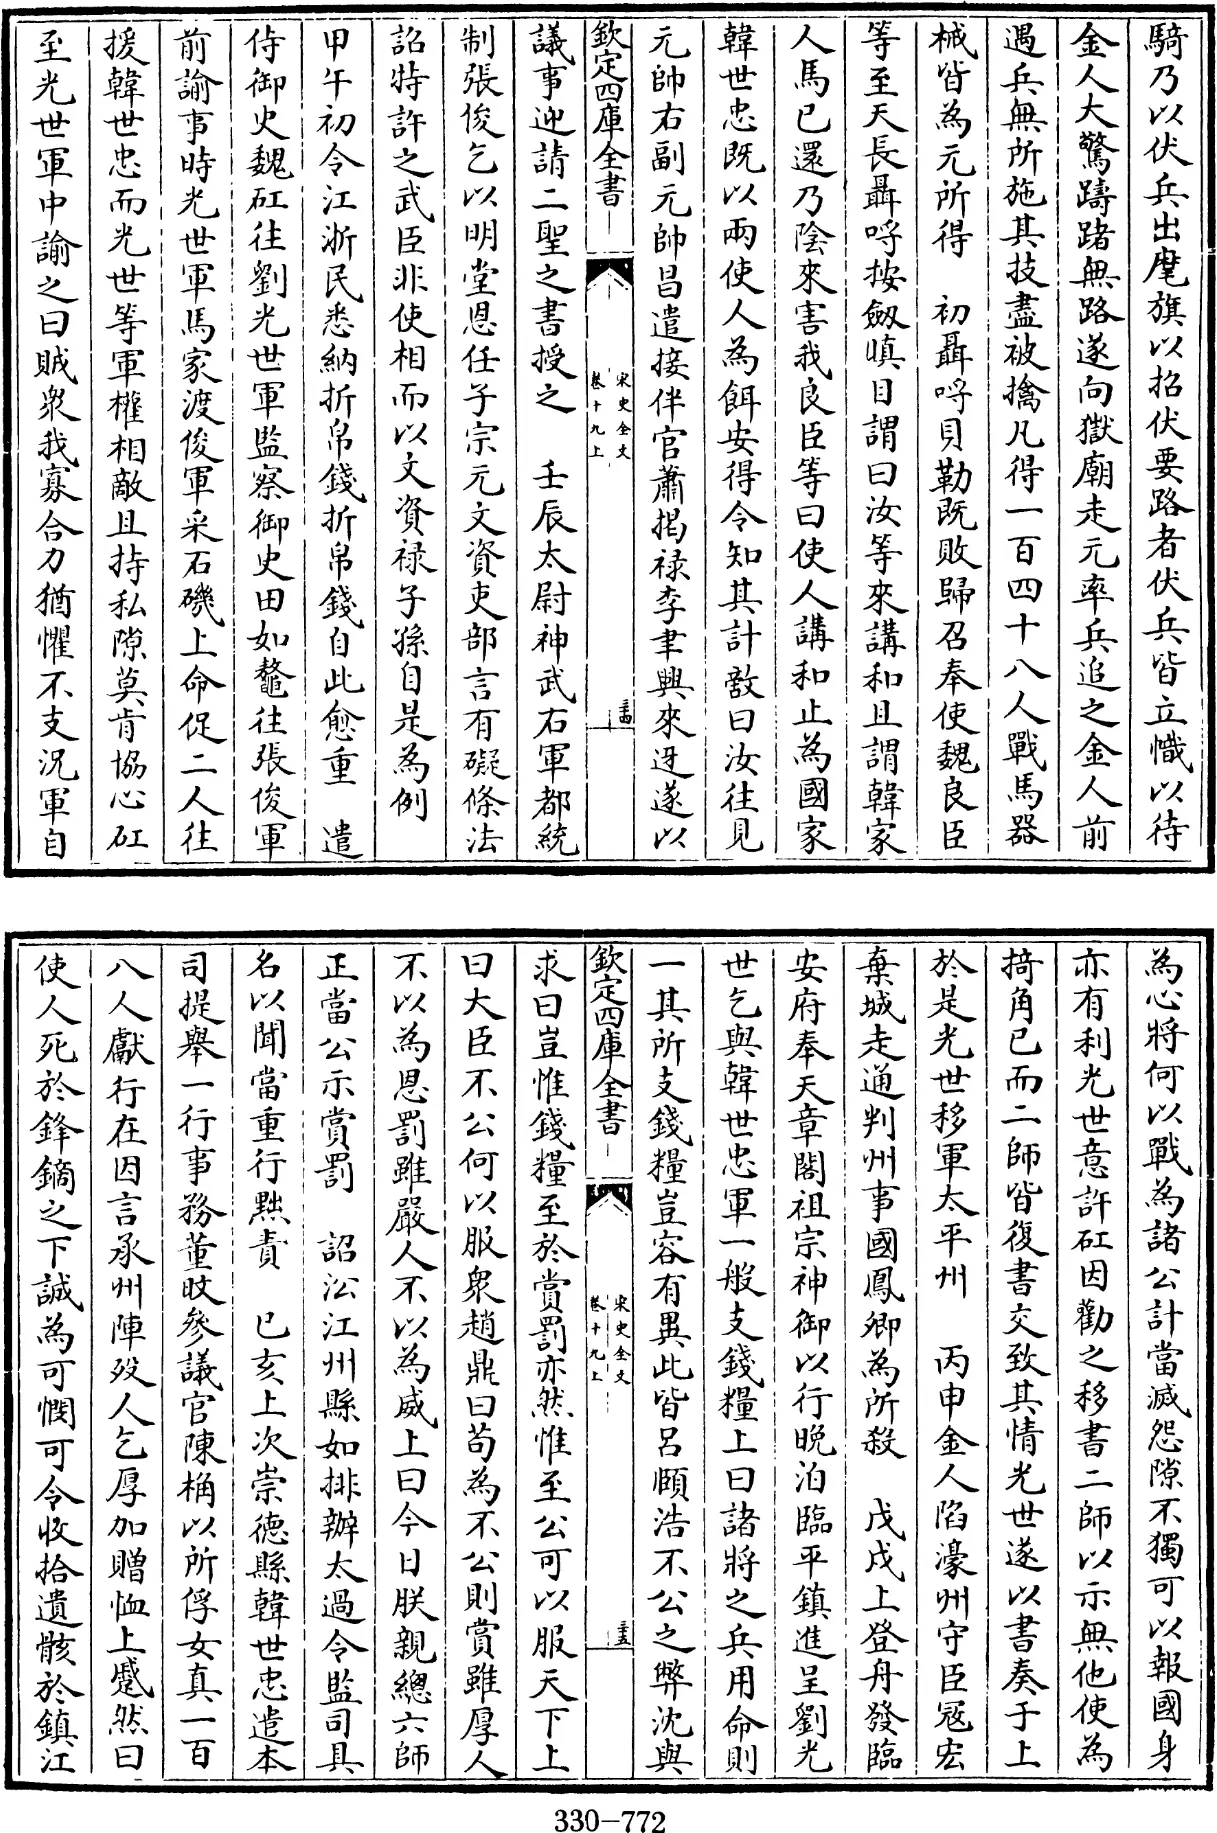 騎乃以伏兵出麾旗以招伏要路者伏兵皆立幟以待
金人大驚躊躇無路遂向嶽廟走元率兵追之金人前
遇兵無所施其技盡被擒凡得一百四十八人戰馬器
械皆為元所得　初聶哷貝勒既敗歸召奉使魏良臣
等至天長聶哷按劍瞋目謂曰汝等來講和且謂韓家
人馬已還乃陰來害我良臣等曰使人講和止為國家
韓世忠既以兩使人為餌安得令知其計敵曰汝往見
元帥右副元帥昌遣接伴官蕭揭祿李聿興來迓遂以
欽定四庫全書
宋史全文
卷十九上
議事迎請二聖之書授之　壬辰太尉神武右軍都統
制張俊乞以明堂恩任子宗元文資吏部言有礙條法
詔特許之武臣非使相而以文資祿子孫自是為例
甲午初令江浙民悉納折帛錢折帛錢自此愈重　遣
侍御史魏矼往劉光世軍監察御史田如鼇往張俊軍
前諭事時光世軍馬家渡俊軍采石磯上命促二人往
援韓世忠而光世等軍權相敵且持私隙莫肯協心矼
至光世軍中諭之曰賊衆我寡合力猶懼不支況軍自
為心將何以戰為諸公計當滅怨隙不獨可以報國身
亦有利光世意許矼因勸之移書二帥以示無他使為
掎角已而二師皆復書交致其情光世遂以書奏于上
於是光世移軍太平州　丙申金人陷濠州守臣寇宏
棄城走通判州事國鳳卿為所殺　戊戌上登舟發臨
安府奉天章閣祖宗神御以行晚泊臨平鎮進呈劉光
世乞與韓世忠軍一般支錢糧上曰諸將之兵用命則
一其所支錢糧豈容有異此皆呂頤浩不公之弊沈與
欽定四庫全書
宋史全文
卷十九上
求曰豈惟錢糧至於賞罰亦然惟至公可以服天下上
曰大臣不公何以服衆趙鼎曰苟為不公則賞雖厚人
不以為恩罰雖嚴人不以為威上曰今日朕親總六師
正當公示賞罰　詔㳂江州縣如排辦太過令監司具
名以聞當重行黜責　己亥上次崇德縣韓世忠遣本
司提舉一行事務董旼參議官陳桷以所俘女真一百
八人獻行在因言承州陣歿人乞厚加贈恤上蹙然曰
使人死於鋒鏑之下誠為可憫可令收拾遺骸於鎮江
330-772